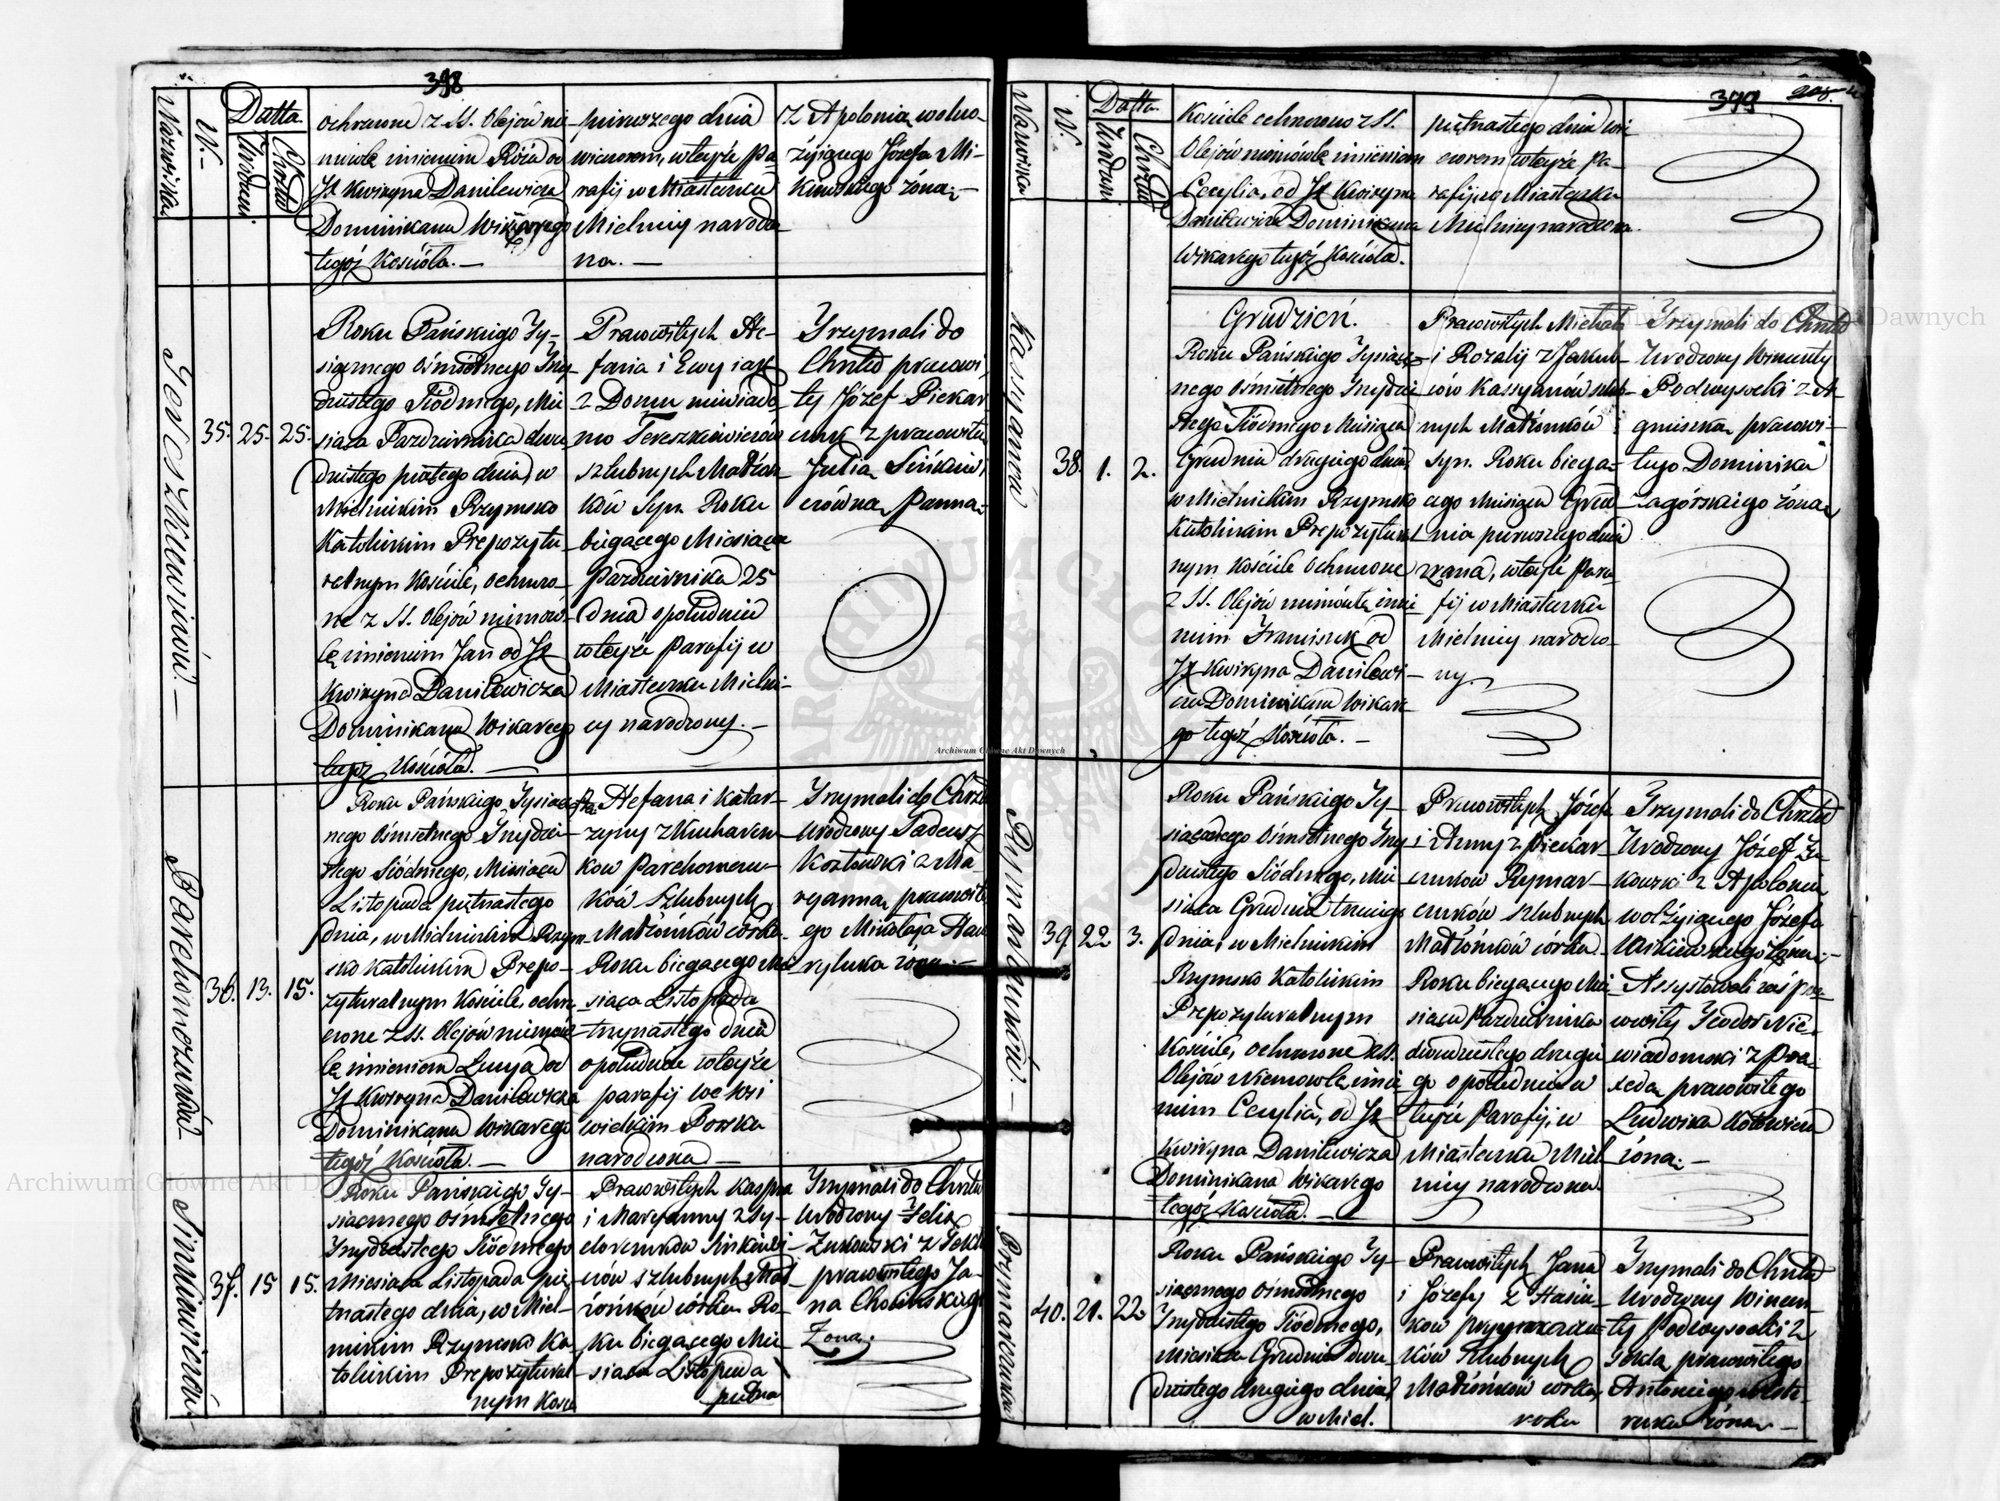 398
Nazwiska
N.
Datta
Urodzin
Chrztu
ochrzcone z SS. Olejów nie-
mowlę imieniem Róża od
JX Kwiryna Danilewicza
Dominikana Wikarego
tegoż Kościoła.—
pierwszego dnia
wieczorem, wteyże Pa
rafij w Miasteczku
Mielnicy narodzo
na.—
z Apolonią wolno-
żyiącego Józefa Mi-
żona.—
35.
25.
25.
Roku Pańskiego Ty-
siącznego Ośmsetnego Trzy-
dziestego Siódmego, Mie-
siąca Pazdziernika dwu
dziestego piątego dnia, w
Mielnickim Rzymsko
Katolickim Prepozytu-
ralnym Kościele, ochrzco-
ne z SS. Olejów niemow-
lę imieniem Jan od JX
Kwiryna Danilewicza
Dominikana Wikarego
tegoż Kościoła.—
Pracowitych Ste-
fana i Ewy iak
z Domu niewiado-
mo Tereszkiewiczów
szlubnych Małżon-
ków Syn. Roku
biegącego Miesiąca
Pazdziernika 25
dnia opołudniu
wteyże Parafij w
Miasteczku Mielni-
cy narodzony.—
Trzymali do
Chrztu pracowi-
ty Józef Piekar-
czuk z pracowitą
Julią Sinkiewi-
czówną Panną.
Parchomczuków
36.
13.
15.
Roku Pańskiego Tysiącz-
nego Ośmsetnego Trzydzie-
stego Siódmego, Miesiąca
Listopada piętnastego
dnia, w Mielnickim Rzym-
sko Katolickim Prepo-
zyturalnym Kościele, ochrz-
czone z SS. Olejów niemow-
lę imieniem Łucya od
JX Kwiryna Danilewicza
Dominikana Wikarego
tegoż Kościoła.—
Stefana i Katar-
zyny z Kucharcz-
ków Parchomczu-
ków Szlubnych
Małżonków córka.
Roku biegącego Mie-
siąca Listopada
trzynastego dnia
opołudniu wteyże
parafij we Wsi
wielkim Porsku
narodzona.—
Trzymali do Chrztu
Urodzony Tadeusz
Kozłowski z Ma-
ryanną pracowit-
ego Mikołaja
żoną.—
Sinkiewiczów
37.
15
15.
Roku Pańskiego Ty-
siącznego Ośmsetnego
Trzydziestego Siódmego
Miesiąca Listopada pię-
tnastego dnia, w Miel-
nickim Rzymsko Ka-
tolickim Prepozytural
nym Kośc
Pracowitych Kaspra
i Maryanny z Sy-
Sinkiewi-
czów szlubnych Mał-
żonków córka Ro-
ku biegącego Mie-
siąca Listopada
piętna
Trzymali do Chrztu
Urodzony Felix
Żukowski z Teklą
pracowitego Ja-
na
Żoną.
399
Nazwiska
N.
Datta
Urodzin
Chrztu
Kościele ochrzcono z SS.
Olejów niemówlę imieniem
Cecylia, od JX Kwiryna
Danilewicza Dominikana
Wikarego tegoż Kościoła.
piętnastego dnia wie
czorem wteyże Pa-
rafij w Miasteczku
Mielnicy narodzona.
Kassyanów
38.
1.
2.
Grudzień.
Roku Pańskiego Tysiącz-
nego Ośmsetnego Trzydzie-
stego Siódmego Miesiąca
Grudnia drugiego dnia,
w Mielnickim Rzymsko
Katolickim Prepozytural-
nym Kościele ochrzcone
z SS. Olejów niemówlę imie
niem Franciszek od
JX Kwiryna Danilewi-
cza Dominikana Wikare-
go tegoż Kościoła.—
Pracowitych Michała
i Rozalij z Jarcu-
ków Kassyanów szlub-
nych Małżonków
Syn. Roku biegą-
cego Miesiąca Grud-
nia pierwszego dnia
zrana, wteyże Para-
fij w Miasteczku
Mielnicy narodzo-
ny.
Trzymali do Chrztu
Urodzony Wincenty
Podwysocki z A-
gnieszką pracowi-
tego Dominika
Zagórskiego żoną
39.
22
3.
Roku Pańskiego Ty-
siącznego Ośmsetnego Trzy-
dziestego Siódmego, Mie-
siąca Grudnia trzeciego
dnia, w Mielnickim
Rzymsko Katolickim
Prepozyturalnym
Kościele, ochrzcone z SS.
Olejów Niemowlę, imie-
niem Cecylia, od JX
Kwiryna Danilewicza
Dominikana Wikarego
tegoż Kościoła.—
Pracowitych Józefa
i Anny z Piekar-
czuków Rymar-
czuków szlubnych
Małżonków córka.
Roku biegącego Mie-
siąca Pazdziernika
dwudziestego drugie-
go opołudniu w
teyże Parafij, w
Miasteczku Miel-
nicy narodzona.
Trzymali do Chrztu
Urodzony Józef Żu-
kowski z Apolonią
wolżyiącego Józefa
żoną.—
Assystowali zaś pra-
cowity Teodor Nie-
wiadomski z
pracowitego
Ludwika
żoną.—
40.
21.
22
Roku Pańskiego Ty-
siącznego Ośmsetnego
Trzydziestego Siódmego,
Miesiąca Grudnia dwu
dziestego drugiego dnia,
w Miel.
Pracowitych Jana
i Józefy z Stasiu-
ków
ków Szlubnych
Małżonków córka,
roku
Trzymali do Chrztu
Urodzony Wincen-
ty Podwysocki z
Teklą pracowitego
Antoniego
żoną—
Archiwum Główne Akt Dawnych
Archiwum Główne Akt Dawnych
Archiwum Główne Akt Dawnych